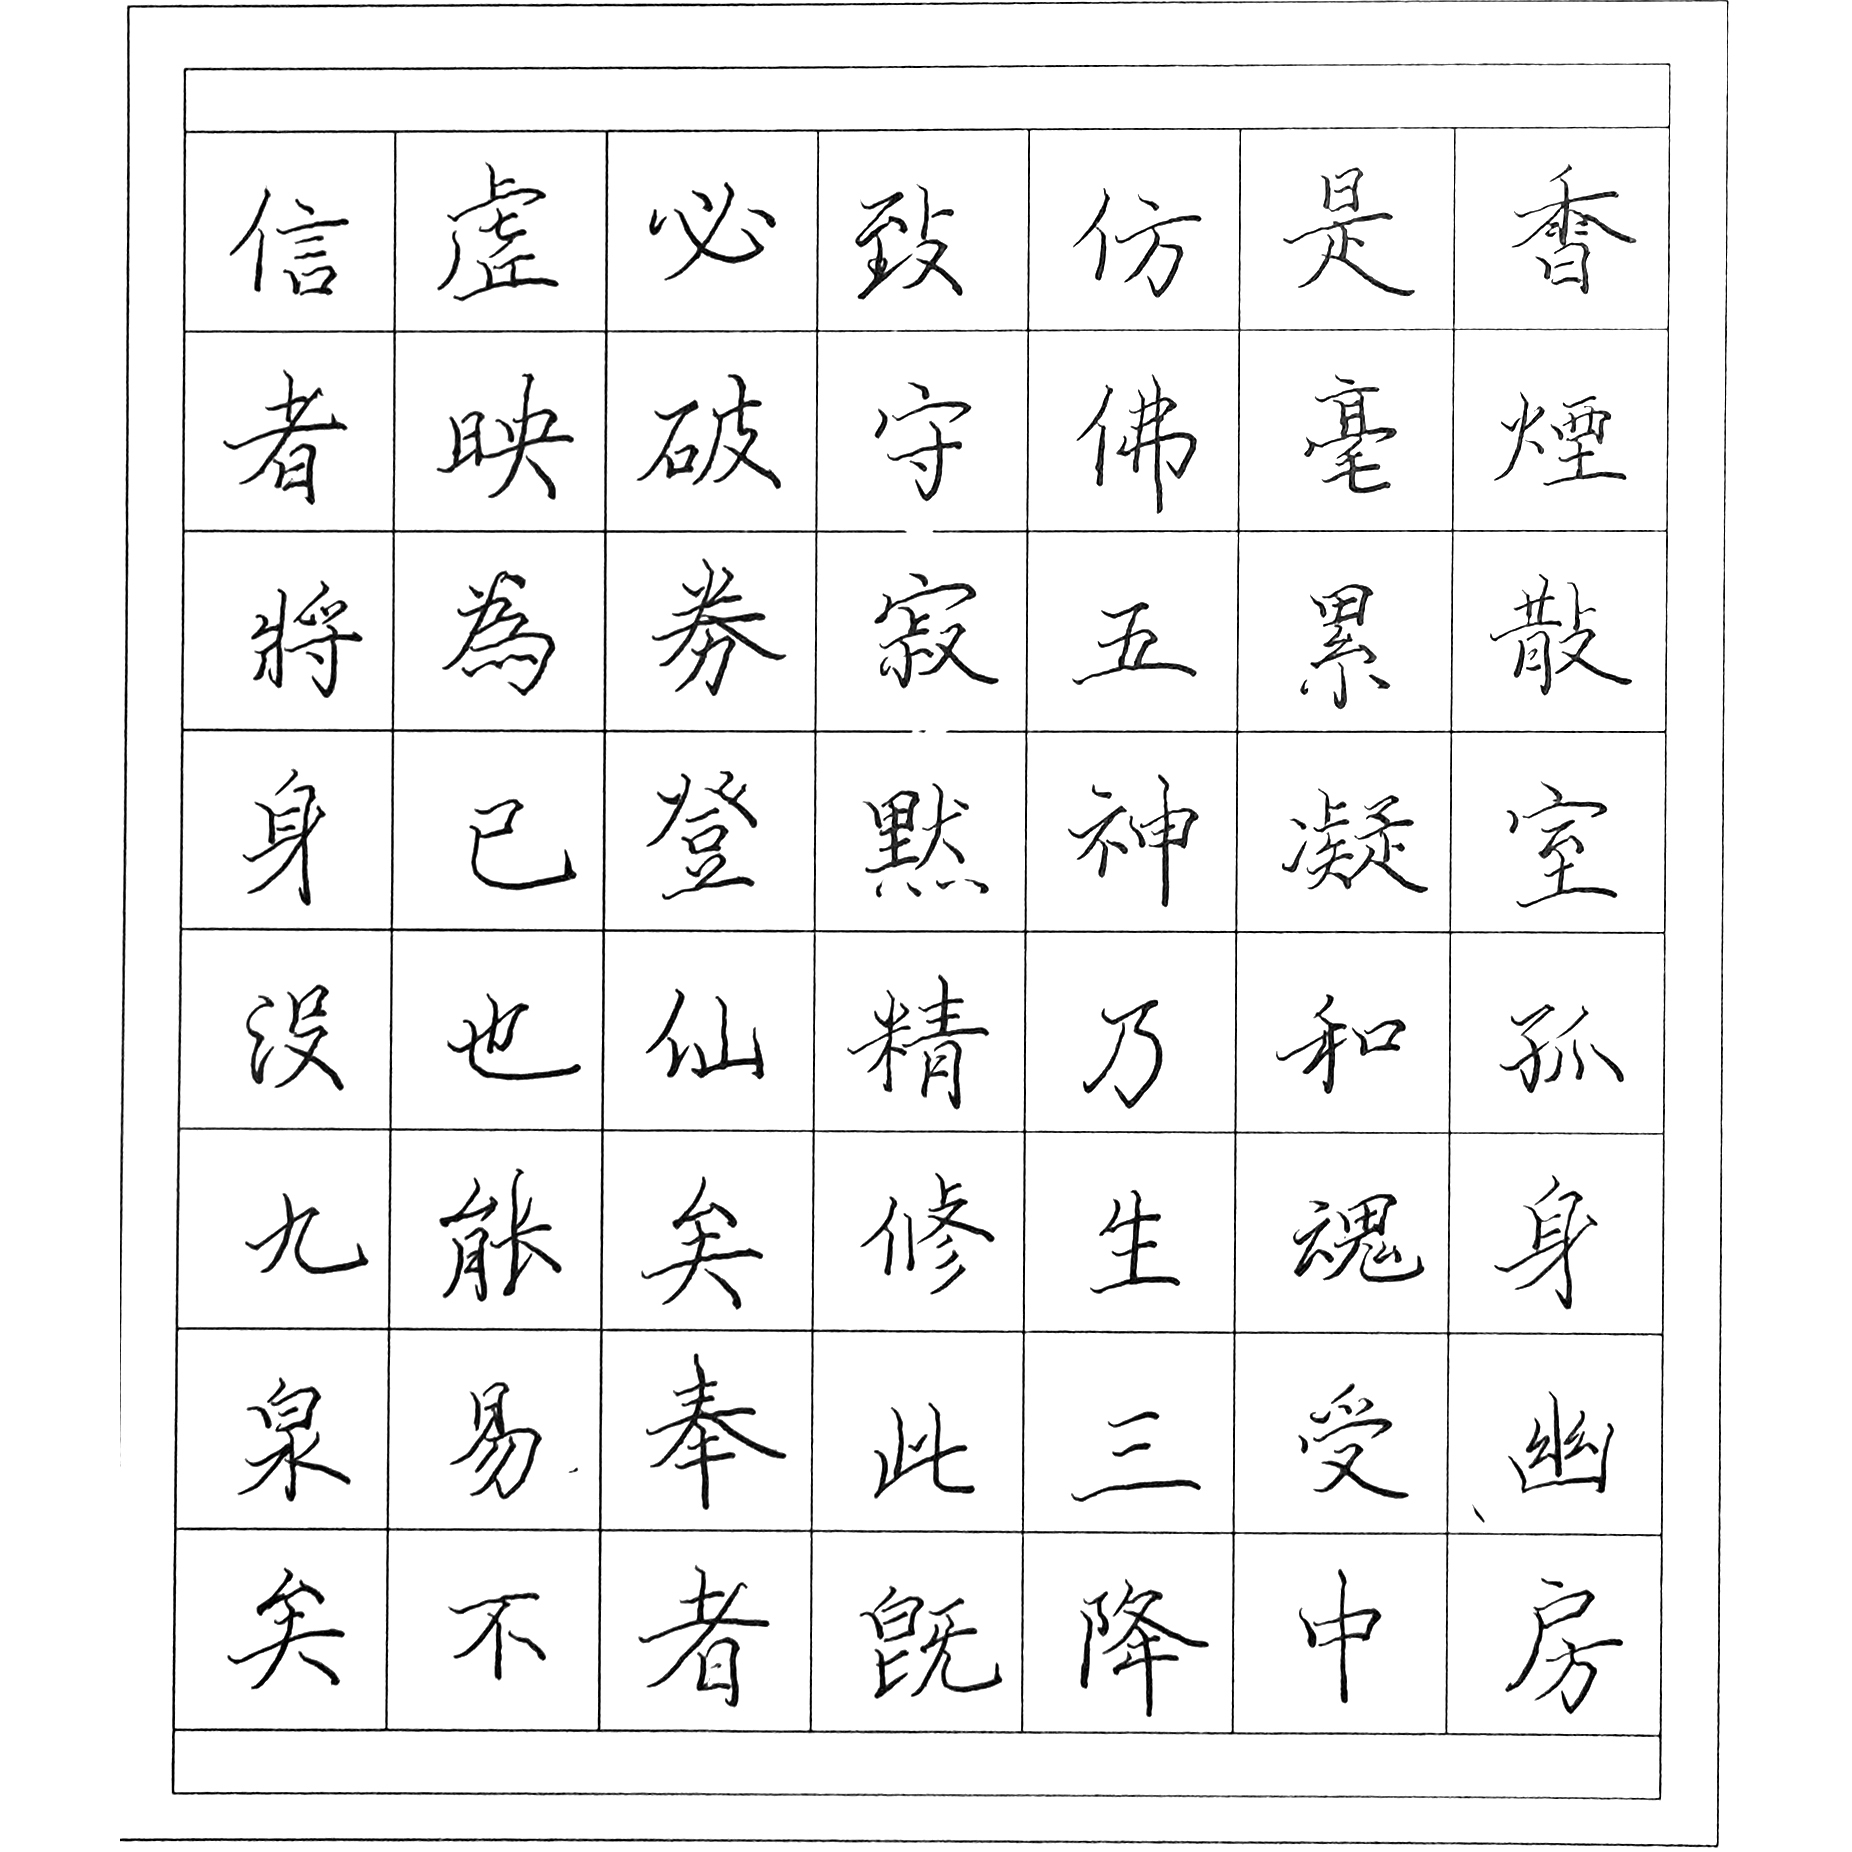 香煙散室孤身幽房
是毫累凝和魂受中
仿佛五神乃生三降
致守寂默精修此既
必破券登仙矣奉者
虛映為己也能易不
信者將身沒九泉矣